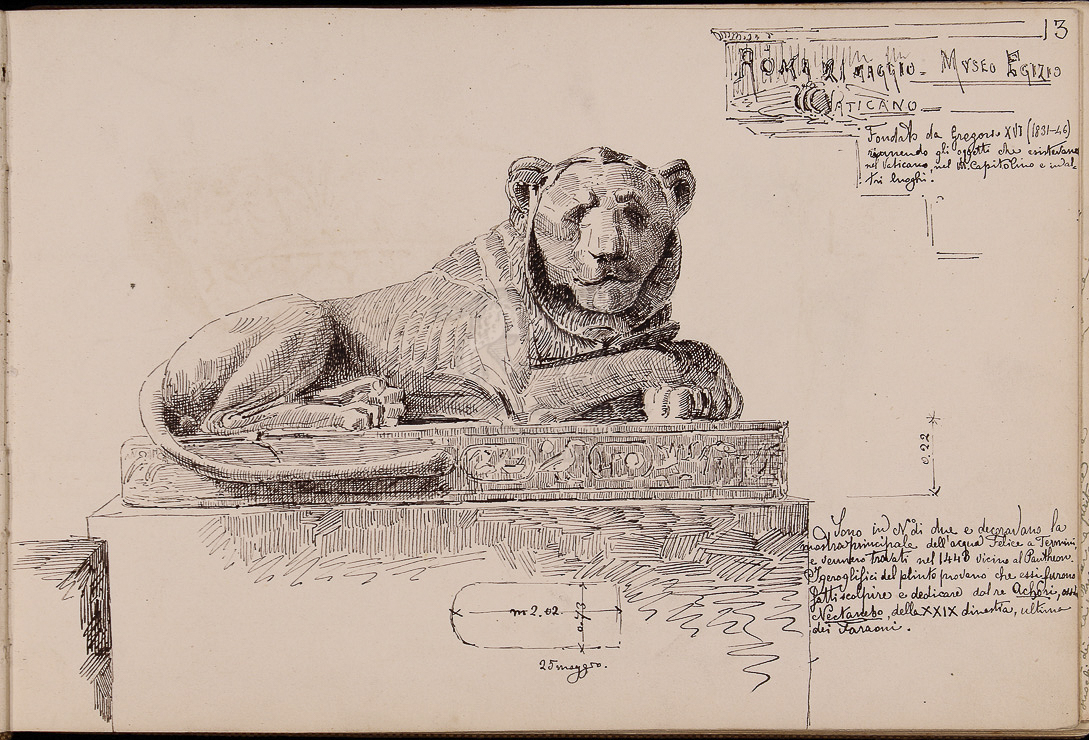 13
ROMA 21 MAGGIO - MVSEO EGIZIO
VATICANO
Fondato da Gregorio XVI (1831-46)
riunendo gli oggetti che esistevano
nel Vaticano, nel M. Capitolino e in al-
tri luoghi.
0,22
Sono in N° di due e decoravano la
mostra principale dell'acqua Felice a Termini
e vennero trovati nel 1443 vicino al Pantheon.
I geroglifici del plinto provano che essi furono
fatti scolpire e dedicare dal re Achori, ossia
Nectanebo, della XXIX dinastia, ultima
dei Faraoni.
m 2.02
0.73
25 maggio.